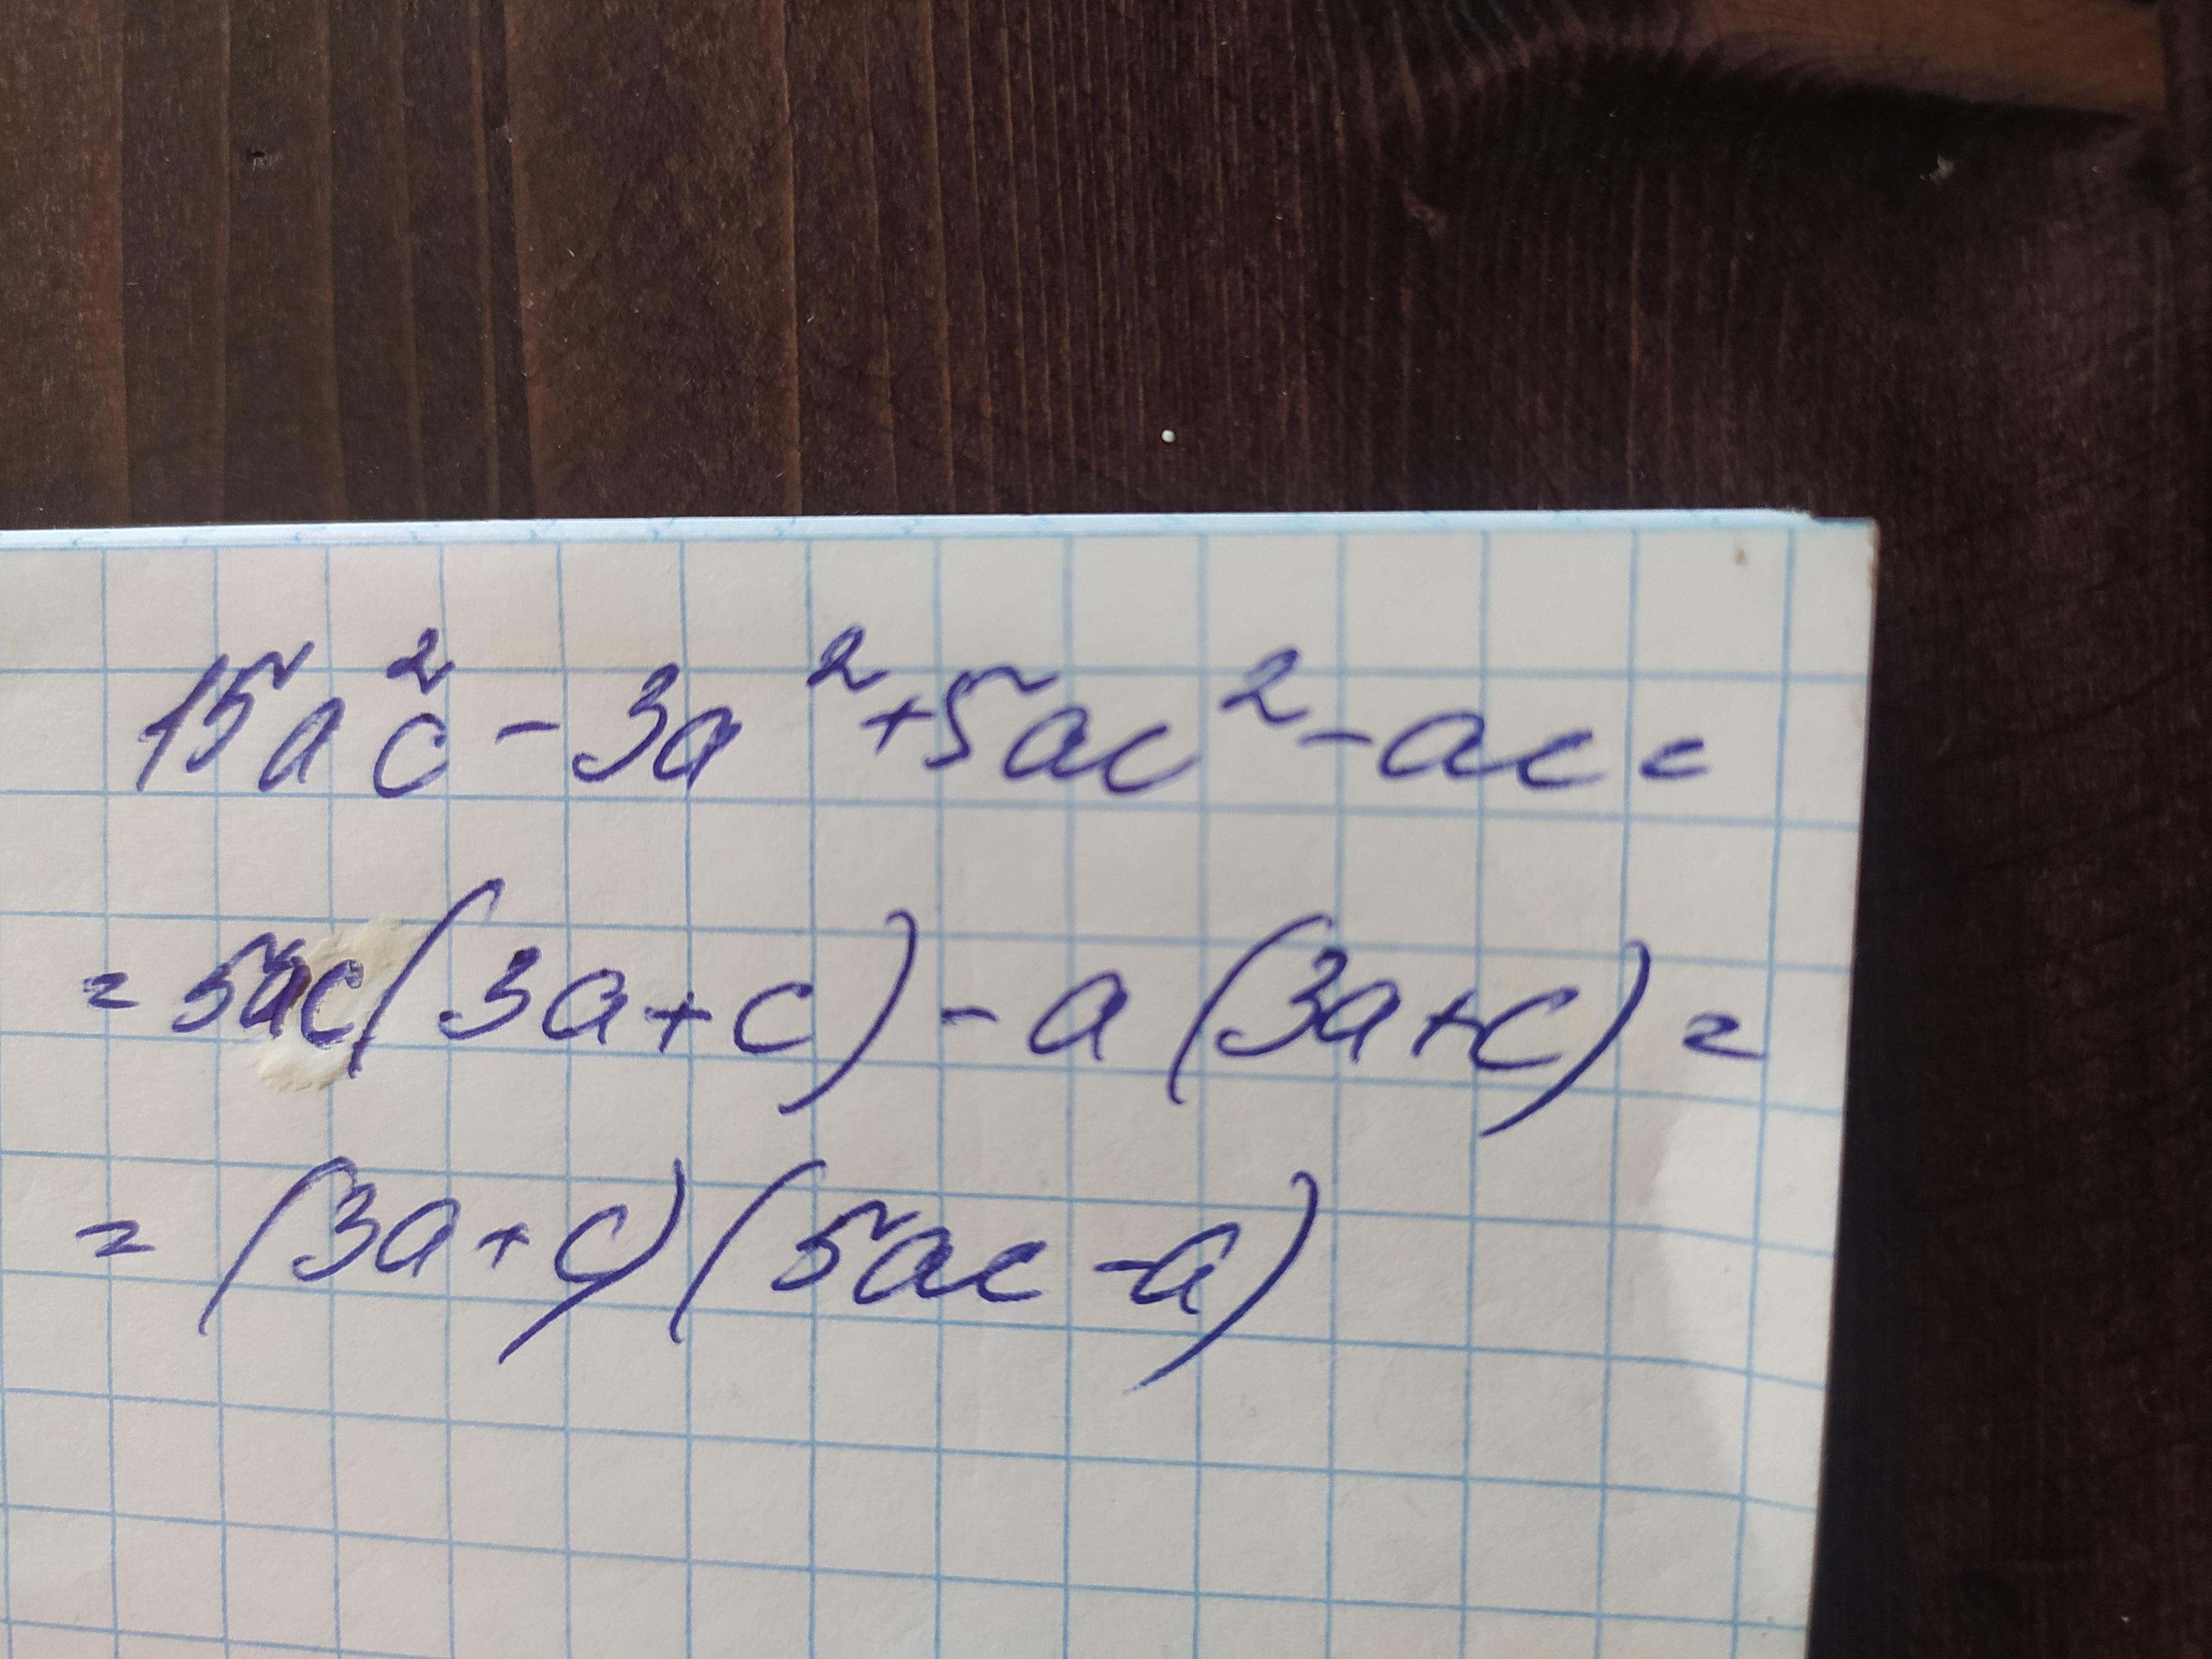 15a²c - 3a² + 5ac² - ac =
= 5ac(3a + c) - a(3a + c) =
= (3a + c)(5ac - a)